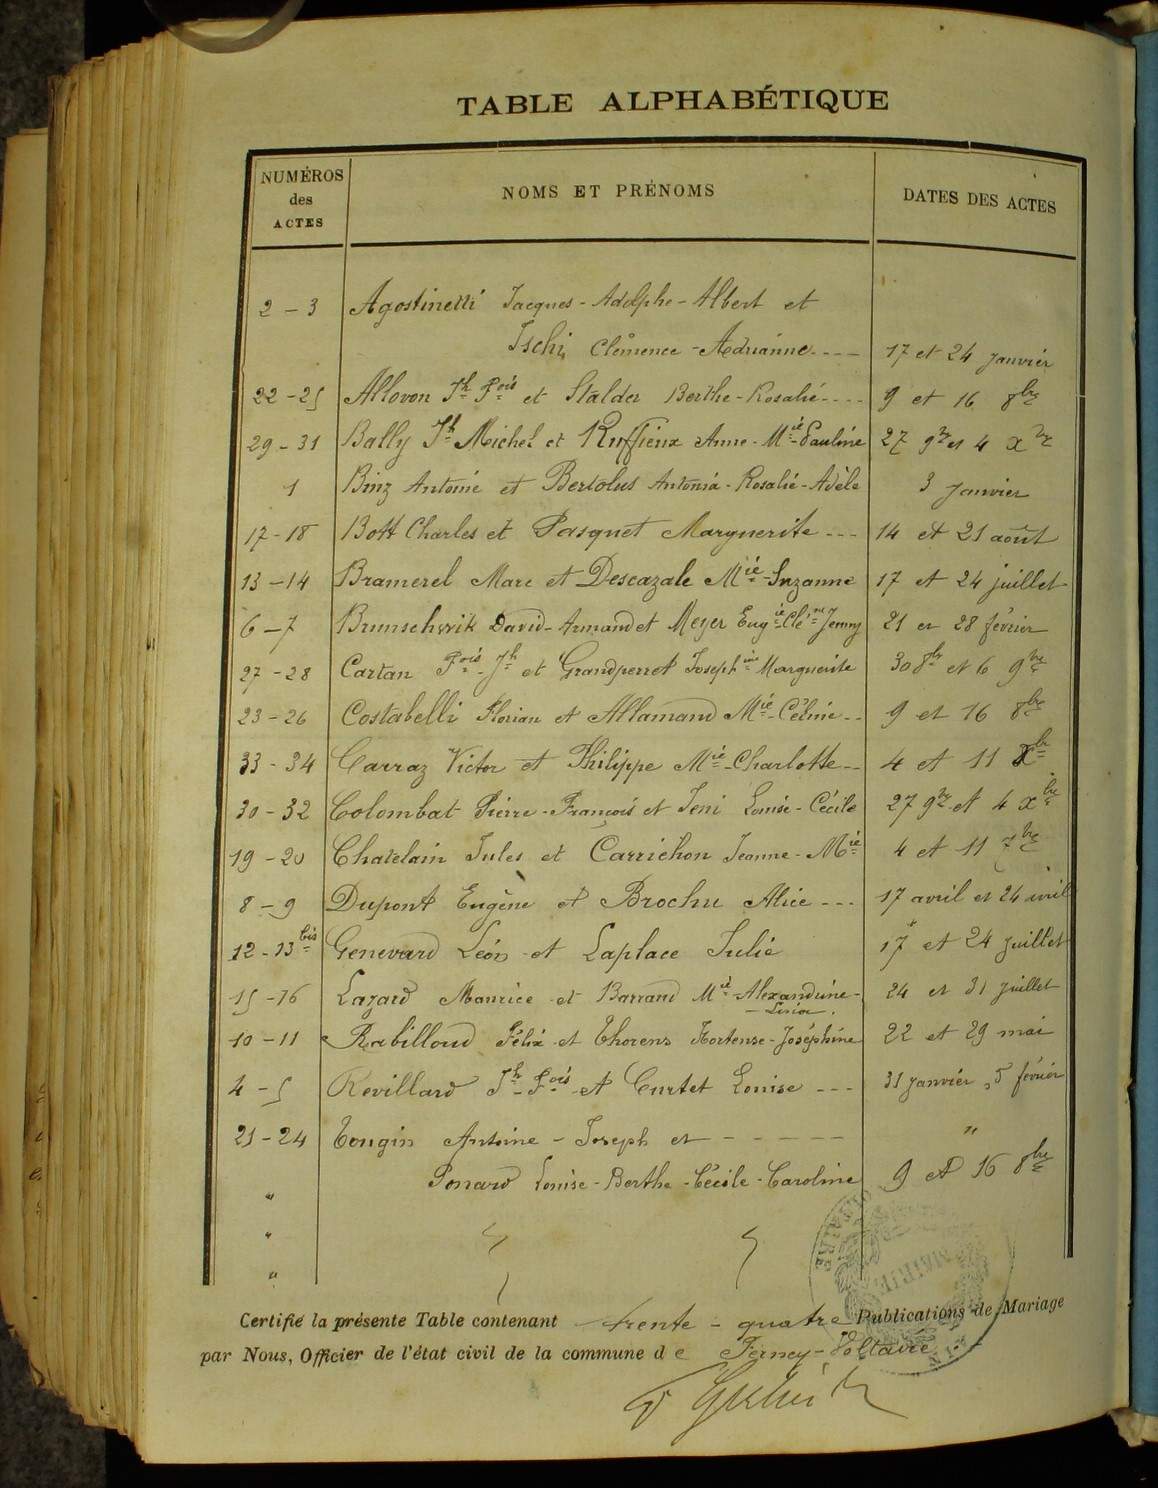 TABLE ALPHABÉTIQUE
NUMÉROS des ACTES NOMS ET PRÉNOMS DATES DES ACTES
2 - 3 Agostinetti Jacques - Adolphe - Albert et
Ischi Clémence - Adrianne - - - 17 et 24 janvier
22 - 25 Allovon Jh Fois et Stalder Berthe - Rosalie - - - - 9 et 16 8bre
29 - 31 Bally Jh Michel et Ruffieux Anne - Mie - Pauline 27 9bre et 4 Xbre
1 Binz Antoine et Bertolus Antonia - Rosalie - Adèle 3 janvier
17 - 18 Bott Charles et Pasquet Marguerite - - - 14 et 21 août
13 - 14 Bramerel Marc et Descazale Mie - Suzanne 17 et 24 juillet
6 - 7 Brunschwik David - Armand et Meyer Eugie Clé Jenny 21 et 28 février
27 - 28 Cartan Fois - Jh et Grandperret Josephine Marguerite 30 8bre et 6 9bre
23 - 26 Costabelli Florian et Allamand Mie - Céline - - 9 et 16 8bre
33 - 34 Carraz Victor et Philippe Mie - Charlotte - - 4 et 11 Xbre
30 - 32 Colombat Pierre - François et Jeni Louise - Cécile 27 9bre et 4 Xbre
19 - 20 Chatelain Jules et Carrichon Jeanne - Mie 4 et 11 7bre
8 - 9 Dupont Eugène et Brochu Alice - - - 17 avril et 24 avril
12 - 13 bis Genevard Léon et Laplace Julie 17 et 24 juillet
15 - 16 Lazard Maurice et Barrand Mie - Alexandrine -
24 et 31 juillet
10 - 11 Rabilloud Félix et Thorens Hortense - Joséphine 22 et 29 mai
4 - 5 Revillard Jh - Fois et Curtet Louise - - - 31 janvier, 5 février
21 - 24 Tougin Antoine - Joseph et - - - - - "
" Ponard Louise - Berthe - Cécile - Caroline 9 et 16 8bre
"
"
Certifié la présente Table contenant trente - quatre Publications de Mariage
par Nous, Officier de l'état civil de la commune de Ferney - Voltaire
MAIRIE